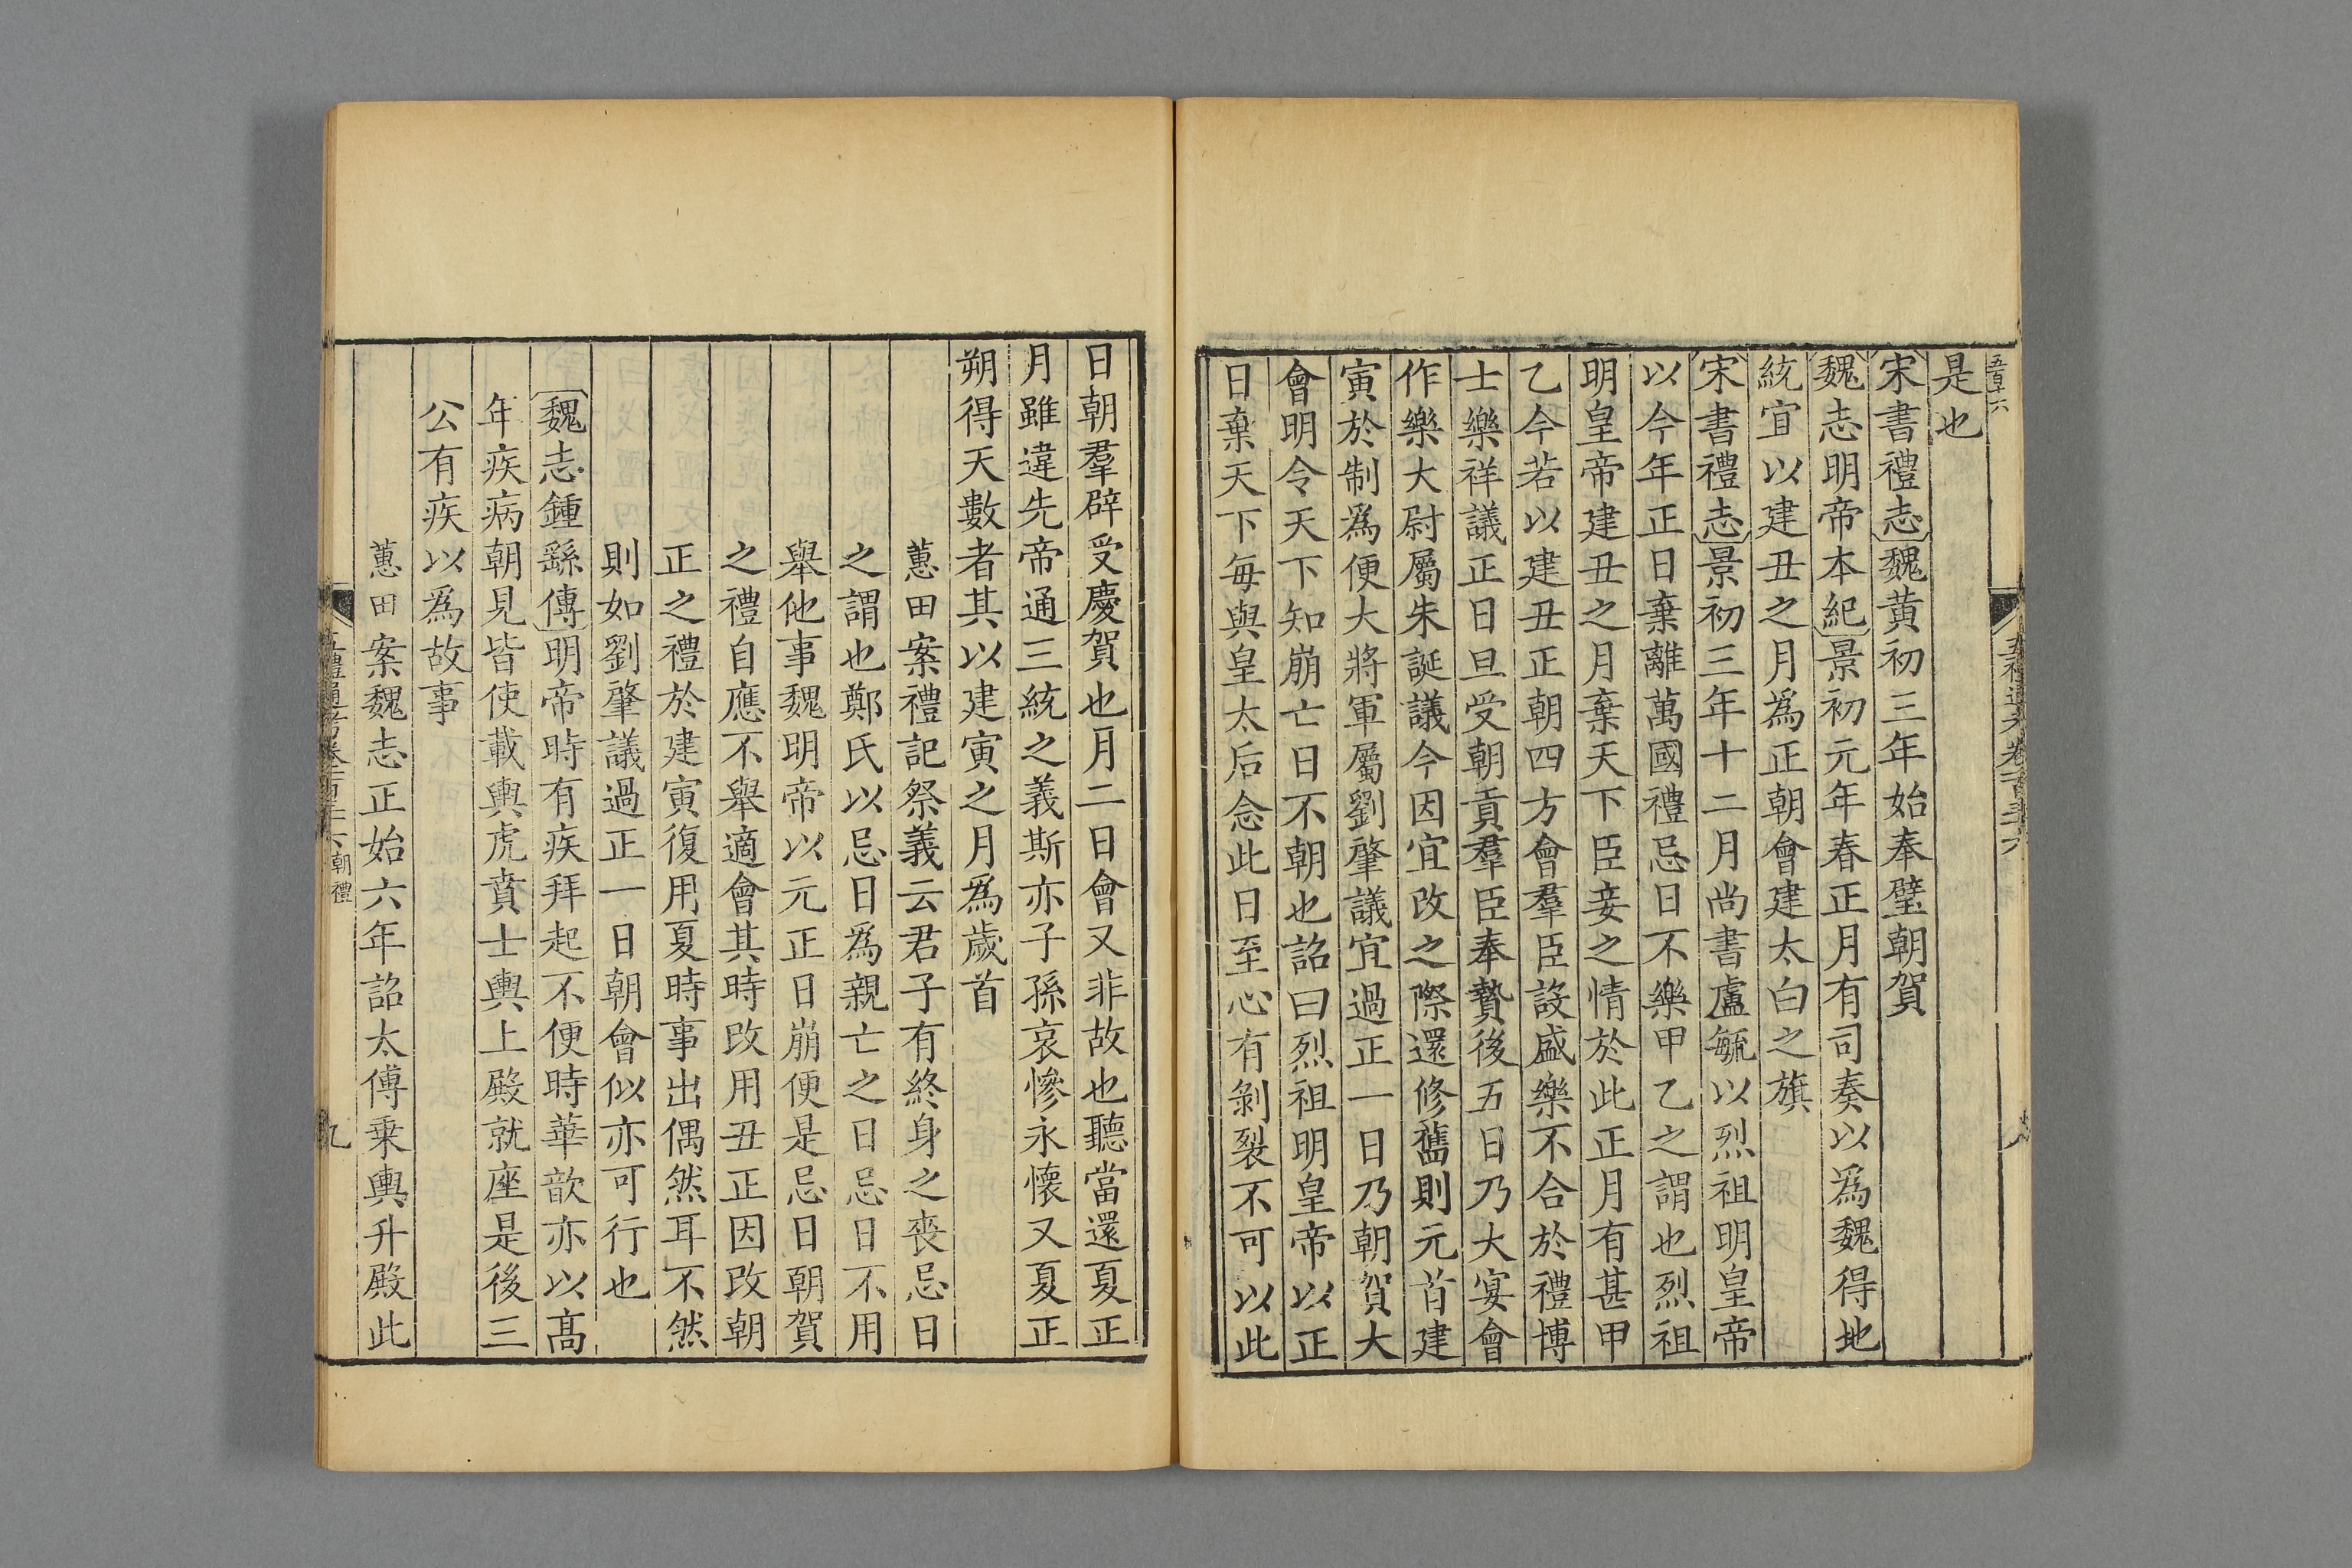 是也
宋書禮志魏黄初三年始奉璧朝賀
魏志明帝本紀景初元年春正月有司奏以爲魏得地
統宜以建丑之月爲正朝會建太白之旗
宋書禮志景初三年十二月尚書盧毓以烈祖明皇帝
以今年正日棄離萬國禮忌日不樂甲乙之謂也烈祖
明皇帝建丑之月棄天下臣妾之情於此正月有甚甲
乙今若以建丑正朝四方會羣臣設盛樂不合於禮博
士樂祥議正日旦受朝貢羣臣奉贄後五日乃大宴會
作樂大尉屬朱誕議今因宜改之際還修舊則元首建
寅於制爲便大將軍屬劉肇議宜過正一日乃朝賀大
會明令天下知崩亡日不朝也詔曰烈祖明皇帝以正
日棄天下毎與皇太后念此日至心有剝裂不可以此
日朝羣辟受慶賀也月二日會又非故也聽當還夏正
月雖違先帝通三統之義斯亦子孫哀慘永懷又夏正
朔得天數者其以建寅之月爲歲首
蕙田案禮記祭義云君子有終身之喪忌日
之謂也鄭氏以忌日爲親亡之日忌日不用
舉他事魏明帝以元正日崩便是忌日朝賀
之禮自應不舉適會其時改用丑正因改朝
正之禮於建寅復用夏時事出偶然耳不然
則如劉肇議過正一日朝會似亦可行也
魏志鍾繇傳明帝時有疾拜起不便時華歆亦以高
年疾病朝見皆使載輿虎賁士輿上殿就座是後三
公有疾以爲故事
蕙田案魏志正始六年詔太傅乗輿升殿此
朝禮
九